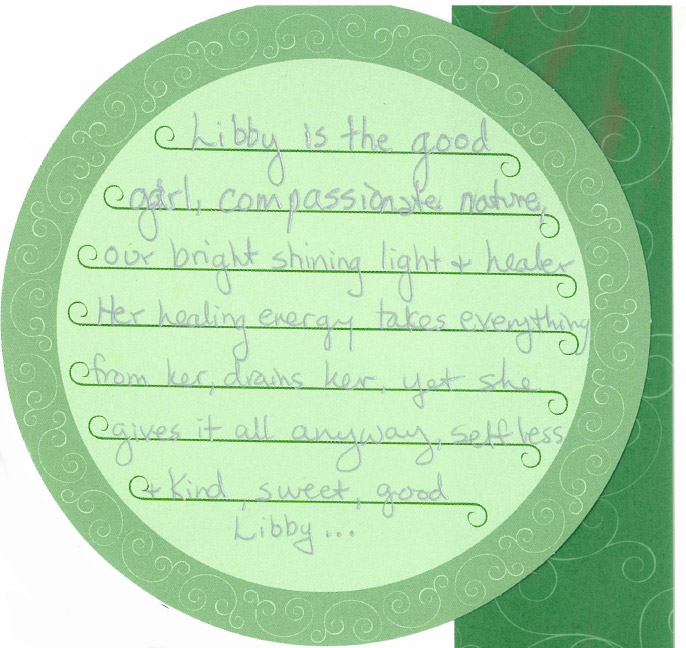 Libby is the good
girl, compassionate nature,
our bright shining light + healer
Her healing energy takes everything
from her, drains her, yet she
gives it all anyway, selfless
+ kind, sweet, good
Libby...